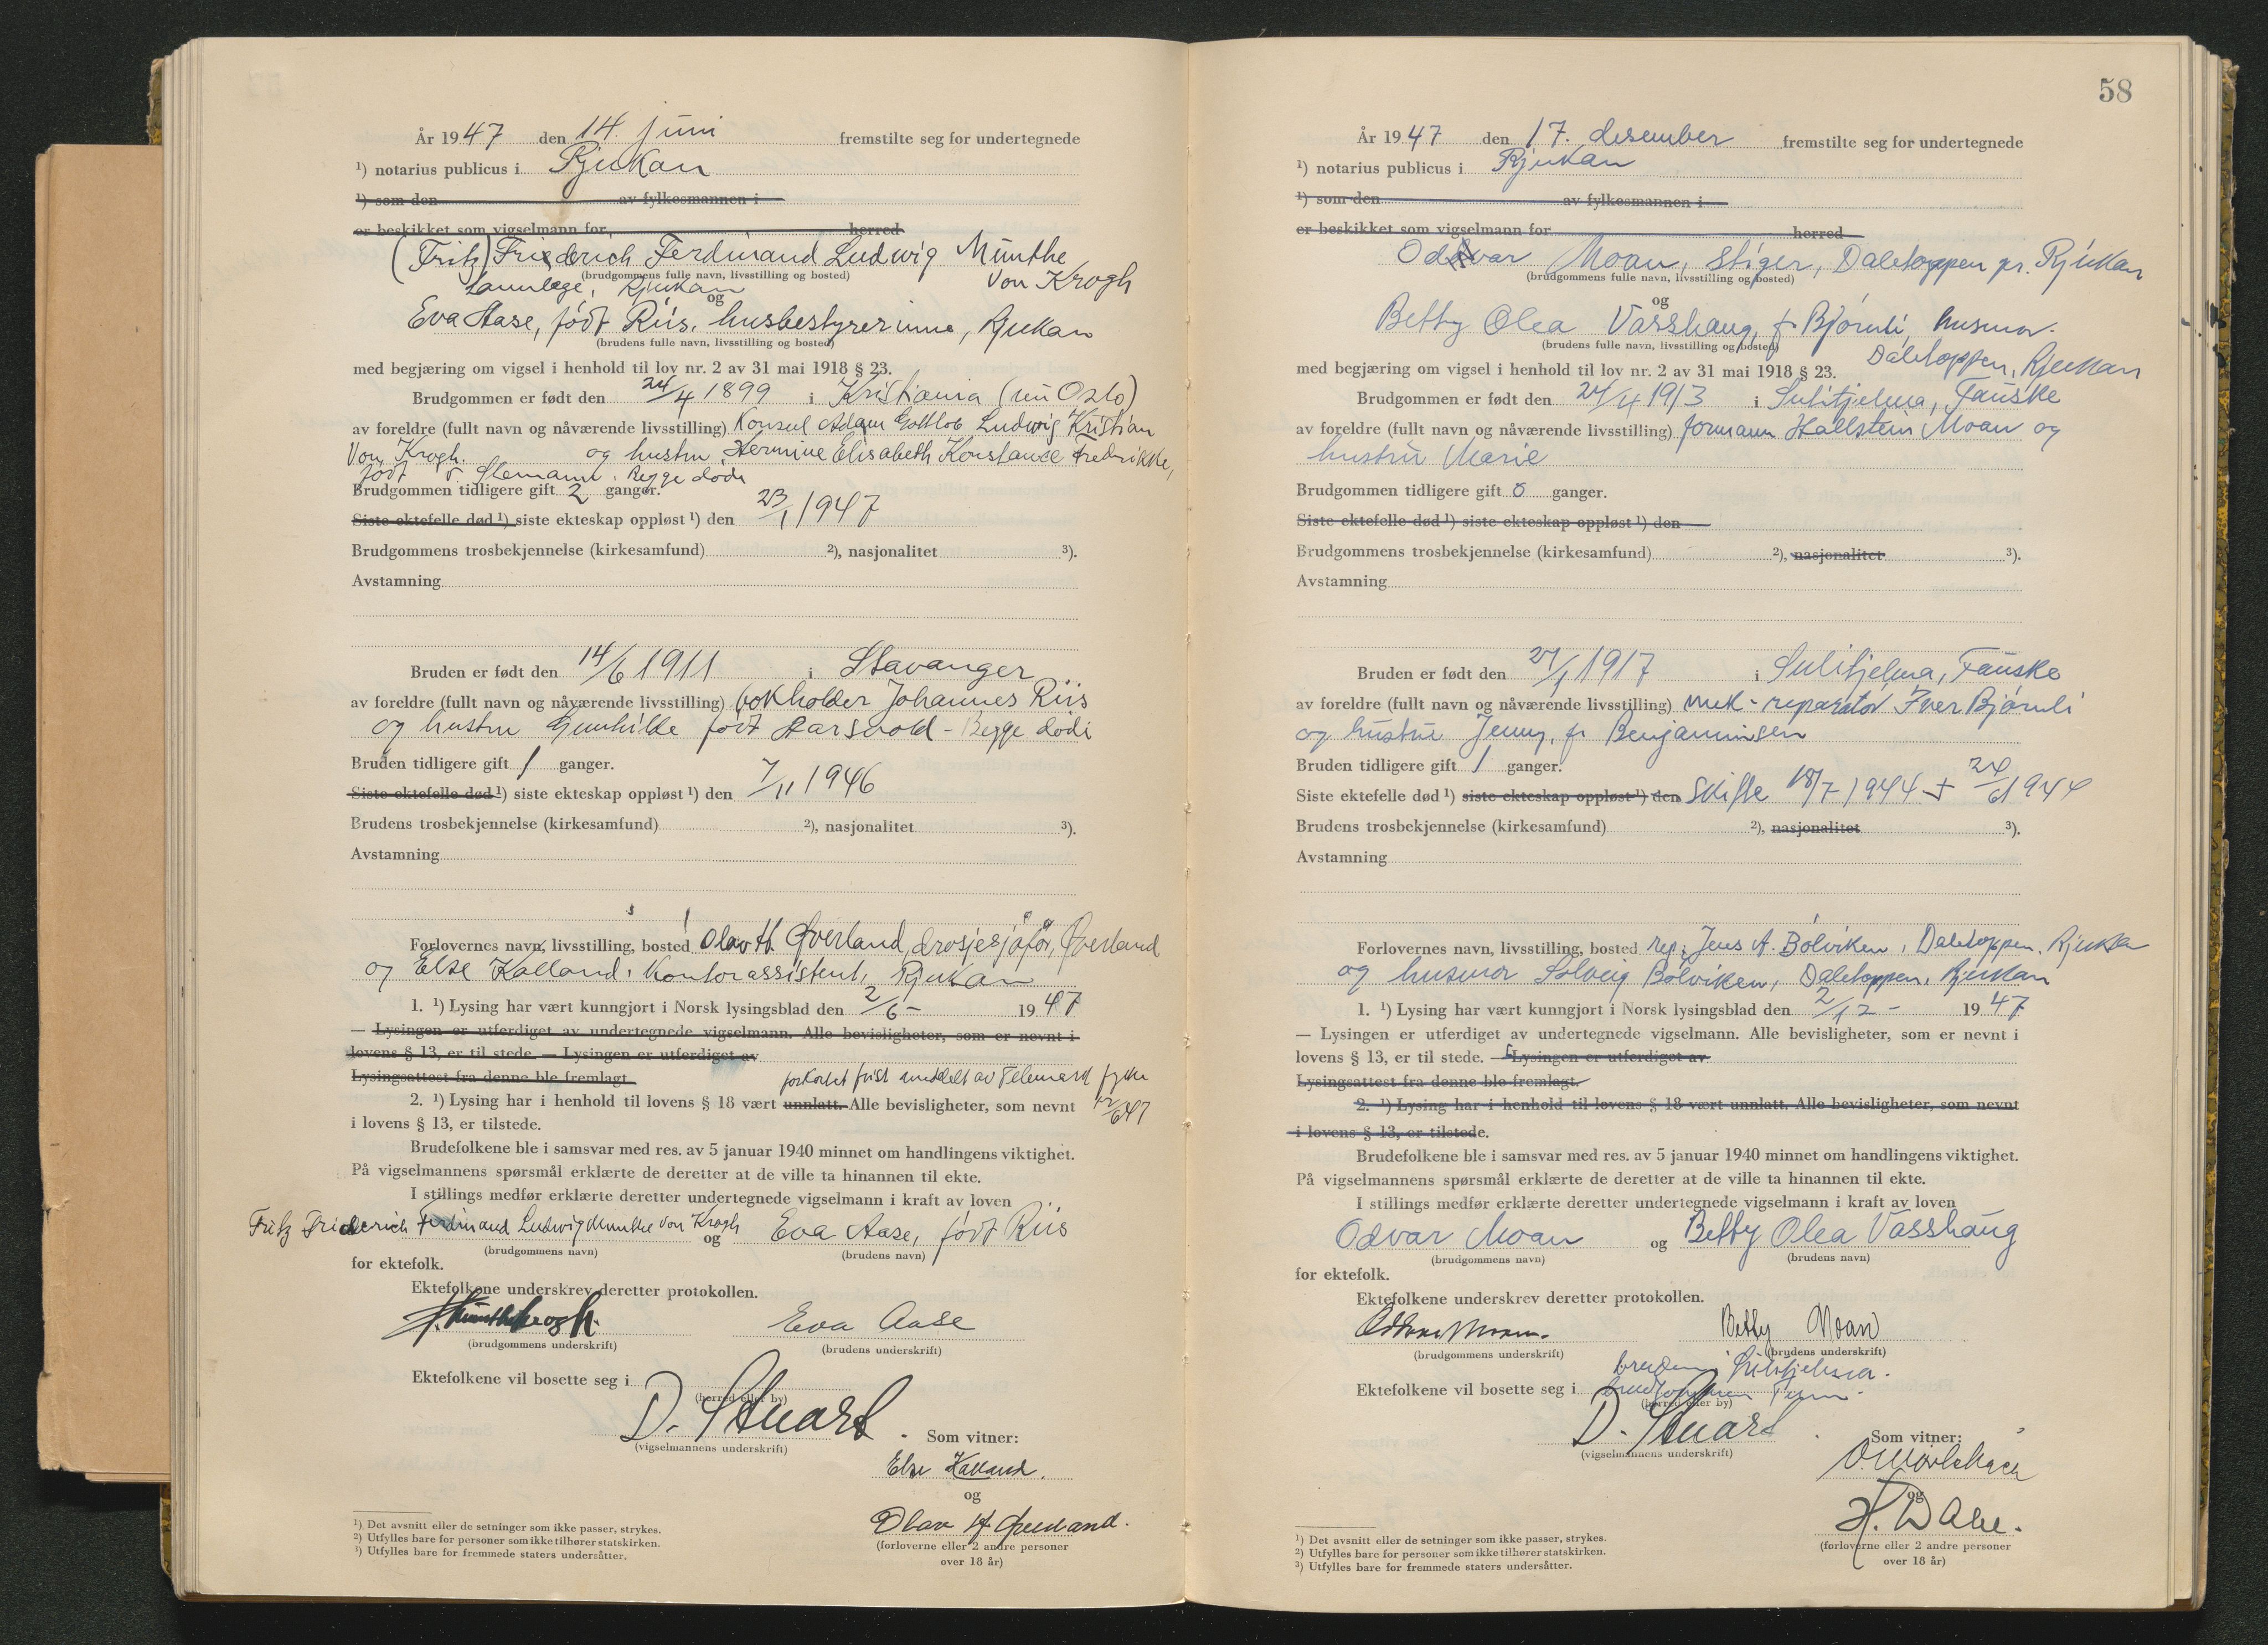 År 1947 den 14. juni fremstilte seg for undertegnede
¹) notarius publicus i Rjukan
¹) som den av fylkesmannen i
er beskikket som vigselmann for herred
(Fritz) Friederich Ferdinand Ludwig Münthe
(brudgommens fulle navn, livsstilling og bosted) Von Krogh
tannlege, Rjukan
og
Eva Aase, født Riis, husbestyrerinne, Rjukan
(brudens fulle navn, livsstilling og bosted)
med begjæring om vigsel i henhold til lov nr. 2 av 31 mai 1918 § 23.
Brudgommen er født den 24/4 1899 i Kristiania (nu Oslo)
av foreldre (fullt navn og nåværende livsstilling) Konsul Adam Gottlob Ludwig Kristian
Von Krogh. og hustru Hermine Elisabeth Konstance Fredrikke,
født v. Stemann. Begge døde
Brudgommen tidligere gift 2 ganger.
Siste ektefelle død ¹) siste ekteskap oppløst ¹) den 23/1 1947
Brudgommens trosbekjennelse (kirkesamfund) ²), nasjonalitet ³).
Avstamning
Bruden er født den 14/6 1911 i Stavanger
av foreldre (fullt navn og nåværende livsstilling) bokholder Johannes Riis
og hustru Gunhilde født Aarsvold - Begge døde
Bruden tidligere gift 1 ganger.
Siste ektefelle død ¹) siste ekteskap oppløst ¹) den 7/11 1946
Brudens trosbekjennelse (kirkesamfund) ²), nasjonalitet ³).
Avstamning
Forlovernes navn, livsstilling, bosted Olav H. Øverland, drosjesjåfør, Øverland
og Else Kalland, Kontorassistent, Rjukan
1. ¹) Lysing har vært kunngjort i Norsk lysingsblad den 2/6 - 1947
— Lysingen er utferdiget av undertegnede vigselmann. Alle bevisligheter, som er nevnt i
lovens § 13, er til stede. — Lysingen er utferdiget av
Lysingsattest fra denne ble fremlagt forkortet frist meddelt av Telemark fylke
2. ¹) Lysing har i henhold til lovens § 18 vært unnlatt. Alle bevisligheter, som nevnt 12/6 47
i lovens § 13, er tilstede.
Brudefolkene ble i samsvar med res. av 5 januar 1940 minnet om handlingens viktighet.
På vigselmannens spørsmål erklærte de deretter at de ville ta hinannen til ekte.
I stillings medfør erklærte deretter undertegnede vigselmann i kraft av loven
Fritz Friederich Ferdinand Ludwig Munthe von Krogh og Eva Aase, født Riis
(brudgommens navn) (brudens navn)
for ektefolk.
Ektefolkene underskrev deretter protokollen.
F. Munthe Krogh. Eva Aase
(brudgommens underskrift) (brudens underskrift)
Ektefolkene vil bosette seg i
(herred eller by)
D. Stuart
(vigselmannens underskrift)
Som vitner:
Else Kalland.
og
Olav H. Øverland.
(forloverne eller 2 andre personer
over 18 år)
¹) Det avsnitt eller de setninger som ikke passer, strykes.
²) Utfylles bare for personer som ikke tilhører statskirken.
¹) Utfylles bare for fremmede staters undersåtter.
58
År 1947 den 17. desember fremstilte seg for undertegnede
¹) notarius publicus i Rjukan
¹) som den av fylkesmannen i
er beskikket som vigselmann for herred
Odvar Moan, Stiger, Daletoppen pr. Rjukan
(brudgommens fulle navn, livsstilling og bosted)
og
Betty Olea Vasshaug, f Bjørnli, husmor.
(brudens fulle navn, livsstilling og bosted)
Daletoppen, Rjukan
med begjæring om vigsel i henhold til lov nr. 2 av 31 mai 1918 § 23.
Brudgommen er født den 24/4 1913 i Sulitjelma, Fauske
av foreldre (fullt navn og nåværende livsstilling) formann Hallstein Moan og
hustru Marie
Brudgommen tidligere gift 0 ganger.
Siste ektefelle død ¹) siste ekteskap oppløst ¹) den
Brudgommens trosbekjennelse (kirkesamfund) ²), nasjonalitet ³).
Avstamning
Bruden er født den 27/1 1917 i Sulitjelma, Fauske
av foreldre (fullt navn og nåværende livsstilling) mek-reparatør Iver Bjørnli
og hustru Jenny, f. Benjaminsen
Bruden tidligere gift 1 ganger.
Siste ektefelle død ¹) siste ekteskap oppløst ¹) den Skifte 18/7 1944 + 24/6 1944
Brudens trosbekjennelse (kirkesamfund) ²), nasjonalitet ³).
Avstamning
Forlovernes navn, livsstilling, bosted rep. Jens A. Bølviken, Daletoppen. Rjukan
og husmor Solveig Bølviken, Daletoppen, Rjukan
1. ¹) Lysing har vært kunngjort i Norsk lysingsblad den 2/12 - 1947
— Lysingen er utferdiget av undertegnede vigselmann. Alle bevisligheter, som er nevnt i
lovens § 13, er til stede. — Lysingen er utferdiget av
Lysingsattest fra denne ble fremlagt.
2. ¹) Lysing har i henhold til lovens § 18 vært unnlatt. Alle bevisligheter, som nevnt
i lovens § 13, er tilstede.
Brudefolkene ble i samsvar med res. av 5 januar 1940 minnet om handlingens viktighet.
På vigselmannens spørsmål erklærte de deretter at de ville ta hinannen til ekte.
I stillings medfør erklærte deretter undertegnede vigselmann i kraft av loven
Odvar Moan og Betty Olea Vasshaug
(brudgommens navn) (brudens navn)
for ektefolk.
Ektefolkene underskrev deretter protokollen.
Oddvar Moan. Betty Moan
(brudgommens underskrift) (brudens underskrift)
bruden i Sulitjelma.
Ektefolkene vil bosette seg i brudgommen
(herred eller by)
D. Stuart
(vigselmannens underskrift)
Som vitner:
og
H. Dale.
(forloverne eller 2 andre personer
over 18 år)
¹) Det avsnitt eller de setninger som ikke passer, strykes.
²) Utfylles bare for personer som ikke tilhører statskirken.
³) Utfylles bare for fremmede staters undersåtter.